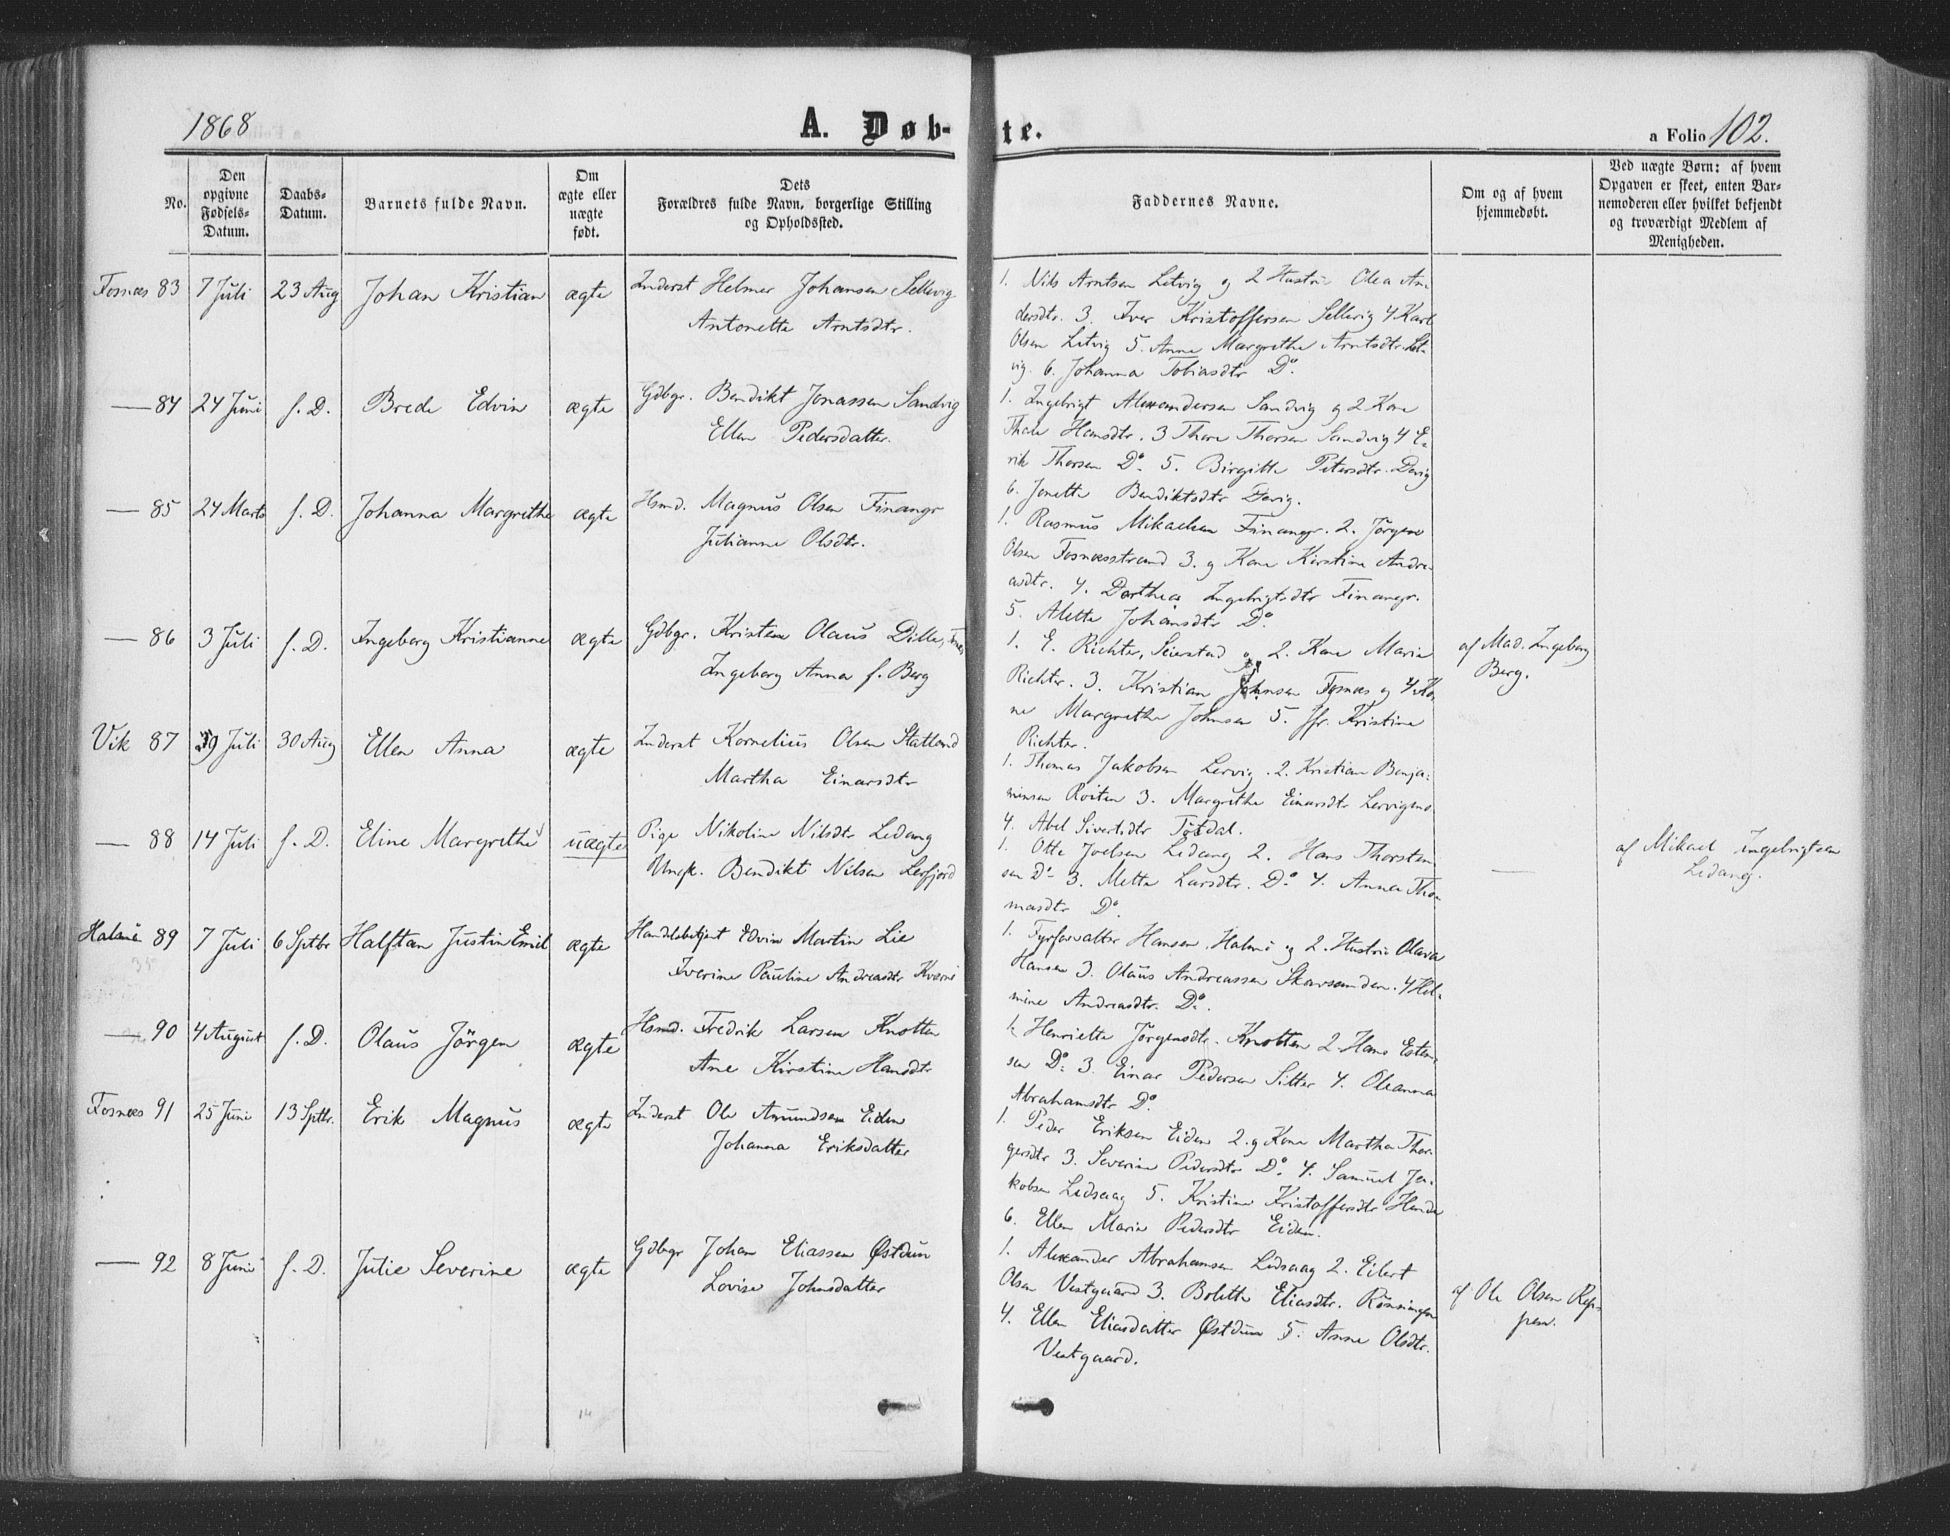 1868
A. Døb-
te.
a Folio 102.
No.
Den opgivne Fødsels-Datum.
Daabs-Datum.
Barnets fulde Navn.
Om ægte eller uægte født.
Dets Forældres fulde Navn, borgerlige Stilling og Opholdssted.
Faddernes Navne.
Om og af hvem hjemmedøbt.
Ved uægte Børn: af hvem Opgaven er skeet, enten Barnemoderen eller hvilket bekjendt og troværdigt Medlem af Menigheden.
Fosnæs 83 7 Juli 23 Aug Johan Kristian ægte Inderst Helmer Johansen Sellevig
Antonette Arntsdtr.
1. Nils Arntsen Letvig og 2 Hustru Olea An-
dersdtr. 3. Iver Kristoffersen Sellevig 4 Karl
Olsen Letvig 5. Anne Margrethe Arntsdtr. Let-
vig. 6. Johanna Tobiasdtr Do.
— 84 24 Juni s. D. Brede Edvin ægte Gdbgr. Bendikt Jonassen Sandvig
Ellen Pedersdatter.
1. Ingebrigt Alexandersen Sandvig og 2 Kone
Thale Hansdtr. 3 Thore Thorsen Sandvig 4 E-
rik Thorsen Do. 5. Birgitte Petersdtr. Davig
6. Jonette Bendiktsdtr Davig.
— 85 24 Marts s. D. Johanna Margrethe ægte Hsmd. Magnus Olsen Finangr
Julianne Olsdtr.
1. Rasmus Mikaelsen Finangr. 2. Jørgen
Olsen Fosnæsstrand 3. og Kone Kirstine Andre-
asdtr. 4. Dorthea Ingebrigtsdtr Finangr.
5. Alette Johansdtr Do.
— 86 3 Juli s. D. Ingeborg Kristianne ægte Gdbgr. Kristen Olaus Dille, Fosnæs
Ingeborg Anna f. Berg
1. E. Richter, Seierstad og 2. Kone Maria
Richter. 3. Kristian Johnsen Fosnæs og 4 Ko-
ne Margrethe Johnsen 5. Jfr. Kristine
Richter.
af Mad. Ingeborg
Berg.
Vik 87 19 Juli 30 Aug Ellen Anna ægte Inderst Kornelius Olsen Statland
Martha Einarsdtr
1. Thomas Jakobsen Lervig. 2. Kristian Benja-
minsen Roiten 3. Margrethe Einarsdtr Lervigens
4. Abel Sivertsdtr Tötdal.
— 88 14 Juli s. D. Eline Margrethe uægte Pige Nikoline Nilsdtr Ledang
Ungk. Bendikt Nilsen Lerfjord
1. Otte Joelsen Ledang 2. Hans Thorsten-
sen Do 3. Mette Larsdtr. Do. 4. Anna Tho-
masdtr Do.
—
af Mikael Ingebrigtsen
Ledang.
Halmö 89 7 Juli 6 Sptbr Halftan Justin Emil ægte Handelsbetjent Edvin Martin Lie
Iverine Pauline Andreasdtr Kvernö
1. Fyrforvalter Hansen, Halmö og 2. Hustru Olava
Hansen 3. Olaus Andreassen Skarsanden. 4 Hel-
mine Andreasdtr. Do.
— 90 4 August s. D. Olaus Jörgen ægte Hsmd. Fredrik Larsen Knotten
Ane Kirstine Hansdtr
1. Henriette Jörgensdtr. Knotten 2. Hans Esten-
sen Do. 3. Einar Pedersen Sitter 4. Oleanna
Abrahamsdtr Do.
Fosnæs 91 25 Juni 13 Sptbr. Erik Magnus ægte Inderst Ole Amundsen Eiden
Johanna Eriksdatter
1. Peder Eriksen Eiden 2. og Kone Martha Thor-
gersdtr 3. Severine Pedersdtr Do. 4. Samuel Ja-
kobsen Ledsaag 5. Kristine Kristoffersdtr Hende
6. Ellen Marie Pedersdtr Eiden.
— 92 8 Juni s. D. Julie Severine ægte Gdbgr Johan Eliassen Østdun
Lovise Johnsdatter
1. Alexander Abrahamsen Ledsaag 2. Eilert
Olsen Vestgaard 3. Bolette Eliasdtr. Rønningen
4. Ellen Eliasdatter Østdun 5. Anne Olsdtr.
Vestgaard.
af Ole Olsen Rep-
pen.